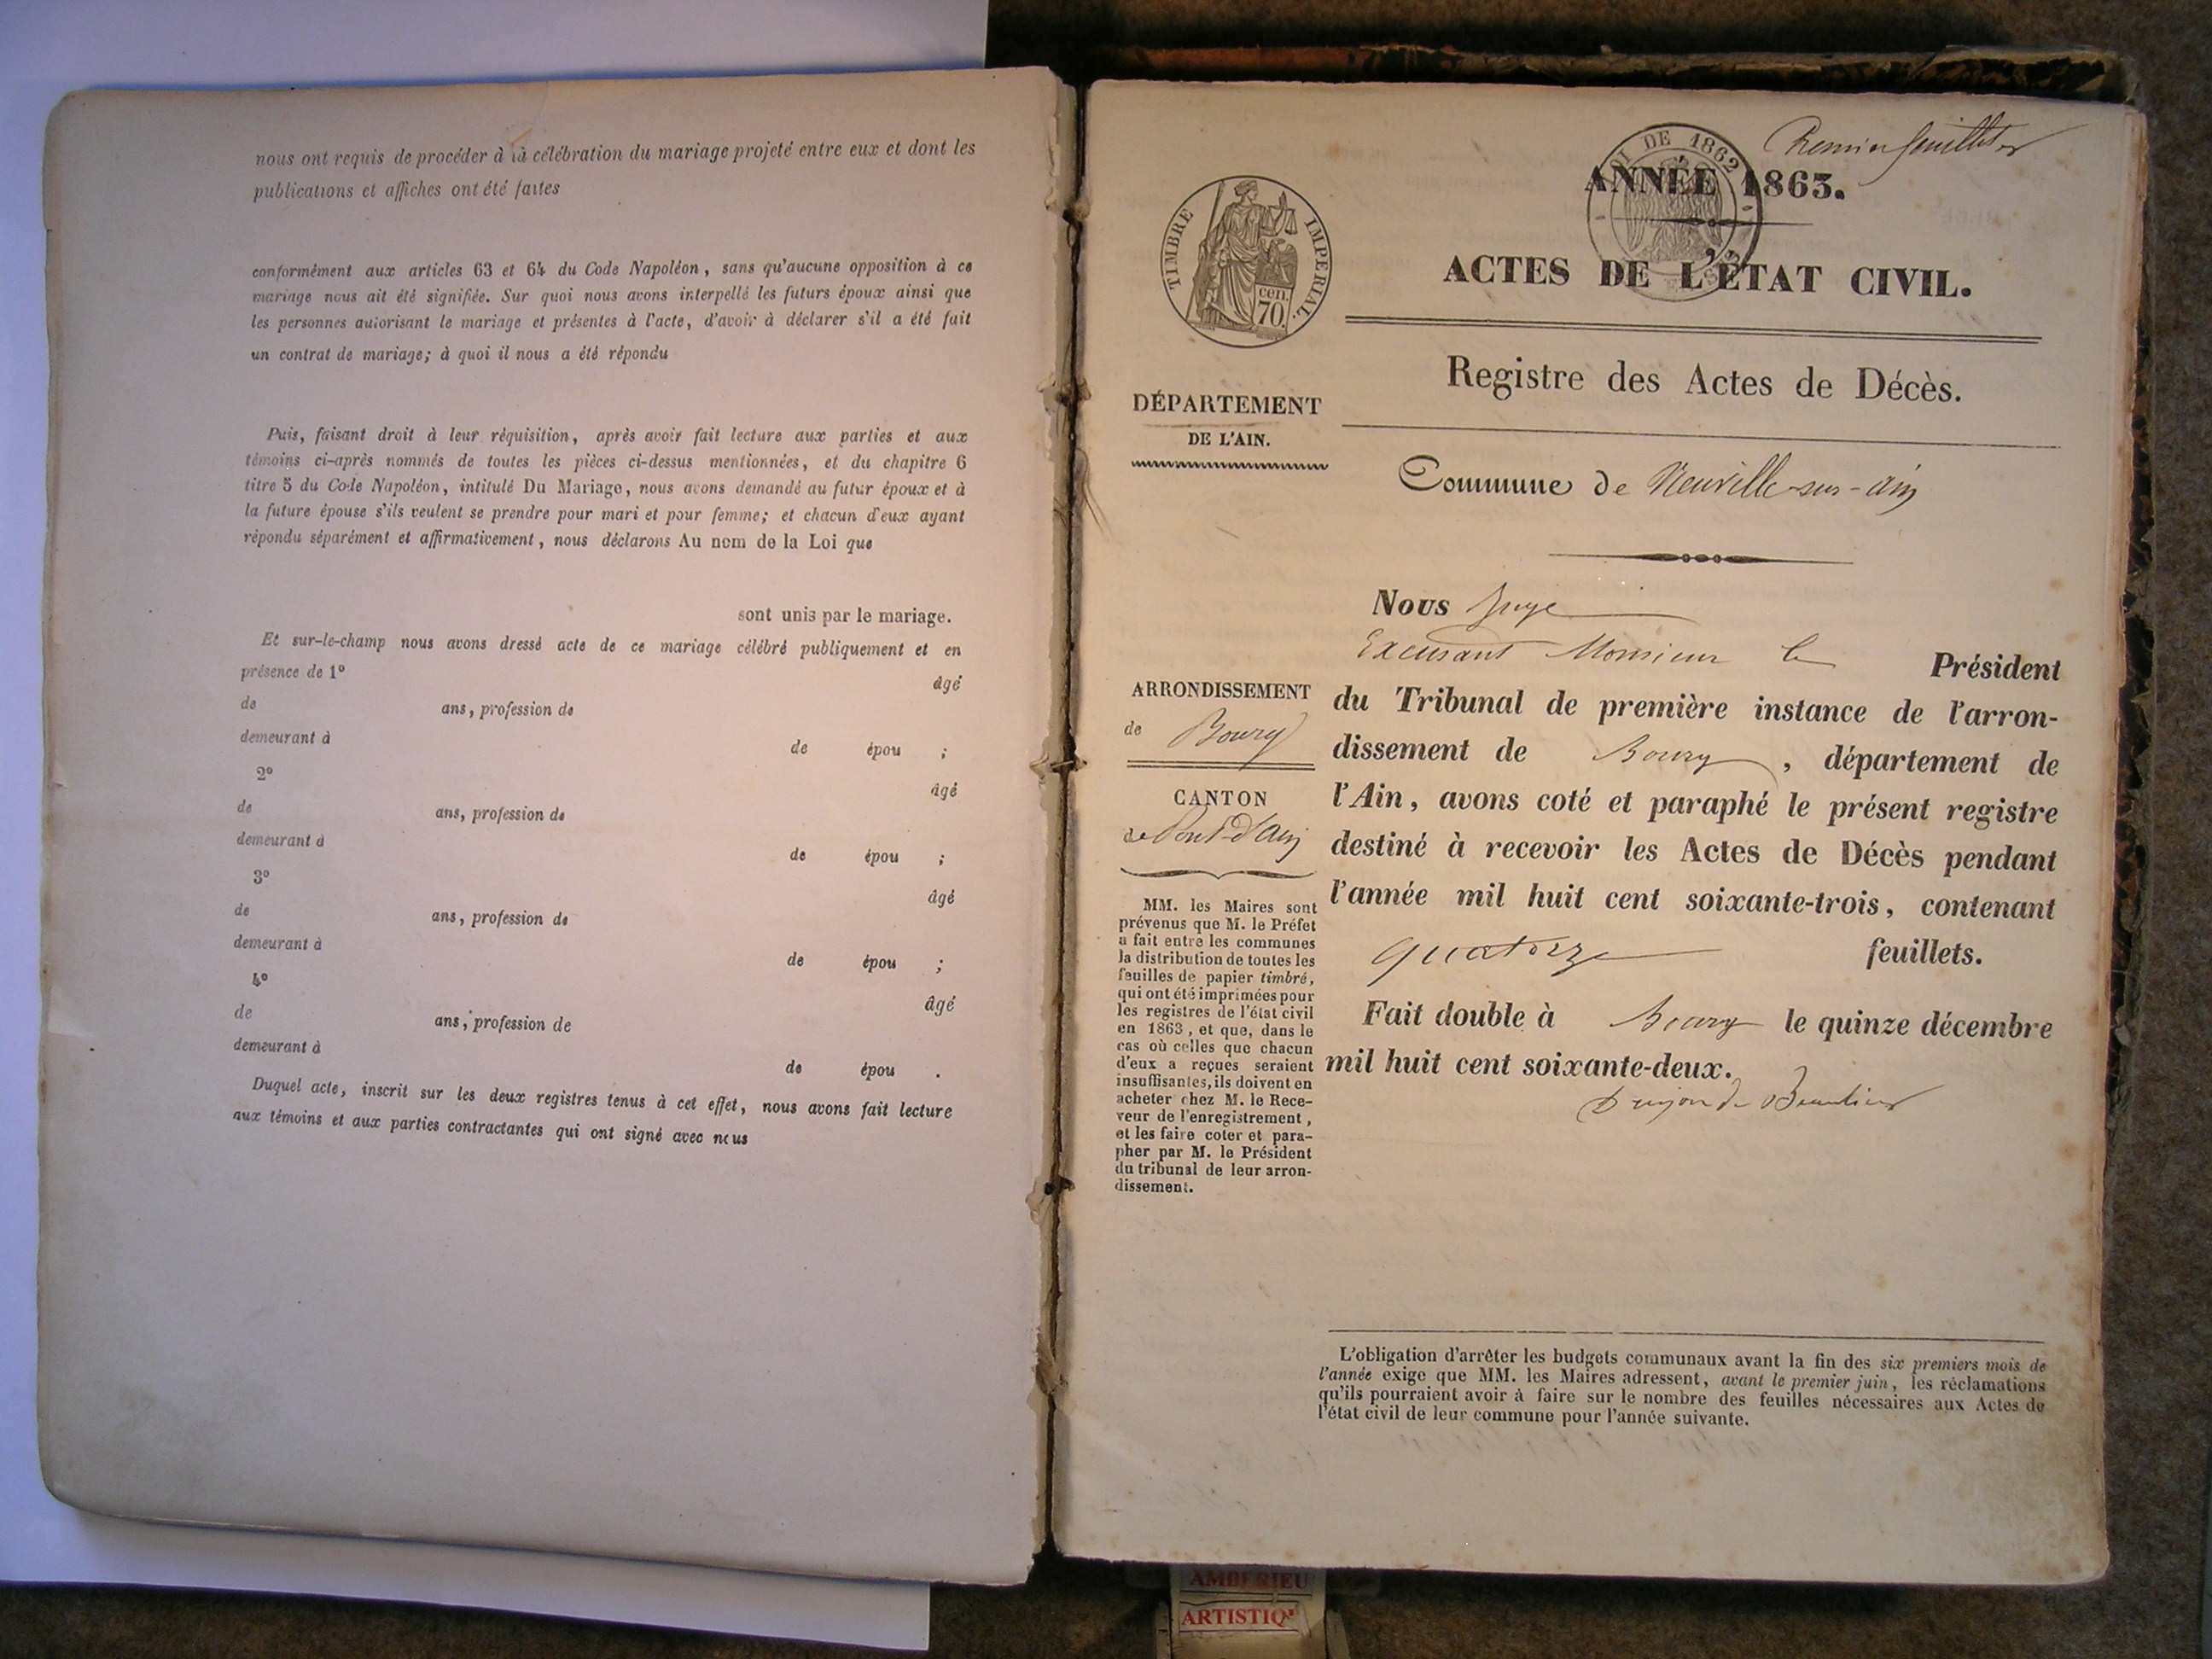 nous ont requis de procéder à la célébration du mariage projeté entre eux et dont les
publications et affiches ont été faites
conformément aux articles 63 et 64 du Code Napoléon, sans qu'aucune opposition à ce
mariage nous ait été signifiée. Sur quoi nous avons interpellé les futurs époux ainsi que
les personnes autorisant le mariage et présentes à l'acte, d'avoir à déclarer s'il a été fait
un contrat de mariage; à quoi il nous a été répondu
Puis, faisant droit à leur réquisition, après avoir fait lecture aux parties et aux
témoins ci-après nommés de toutes les pièces ci-dessus mentionnées, et du chapitre 6
titre 5 du Code Napoléon, intitulé Du Mariage, nous avons demandé au futur époux et à
la future épouse s'ils veulent se prendre pour mari et pour femme; et chacun d'eux ayant
répondu séparément et affirmativement, nous déclarons Au nom de la Loi que
sont unis par le mariage.
Et sur-le-champ nous avons dressé acte de ce mariage célébré publiquement et en
présence de 1° âgé
de ans, profession de
demeurant à de épou ;
2° âgé
de ans, profession de
demeurant à de épou ;
3° âgé
de ans, profession de
demeurant à de épou ;
4° âgé
de ans, profession de
demeurant à de épou .
Duquel acte, inscrit sur les deux registres tenus à cet effet, nous avons fait lecture
aux témoins et aux parties contractantes qui ont signé avec nous
Premier feuillet
DE 1862
ANNÉE 1863.
TIMBRE IMPÉRIAL.
cen.
70.
ACTES DE L'ÉTAT CIVIL.
Registre des Actes de Décès.
DÉPARTEMENT
DE L'AIN.
Commune de Neuville-sur-Ain
Nous Juge
Excusant Monsieur le Président
du Tribunal de première instance de l'arron-
dissement de Bourg, département de
l'Ain, avons coté et paraphé le présent registre
destiné à recevoir les Actes de Décès pendant
l'année mil huit cent soixante-trois, contenant
quatorze feuillets.
Fait double à Bourg le quinze décembre
mil huit cent soixante-deux.
ARRONDISSEMENT
de Bourg
CANTON
de Pont-d'Ain
MM. les Maires sont
prévenus que M. le Préfet
a fait entre les communes
la distribution de toutes les
feuilles de papier timbré,
qui ont été imprimées pour
les registres de l'état civil
en 1863, et que, dans le
cas où celles que chacun
d'eux a reçues seraient
insuffisantes, ils doivent en
acheter chez M. le Rece-
veur de l'enregistrement,
et les faire coter et para-
pher par M. le Président
du tribunal de leur arron-
dissement.
L'obligation d'arrêter les budgets communaux avant la fin des six premiers mois de
l'année exige que MM. les Maires adressent, avant le premier juin, les réclamations
qu'ils pourraient avoir à faire sur le nombre des feuilles nécessaires aux Actes de
l'état civil de leur commune pour l'année suivante.
AMBERIEU
ARTISTIQ